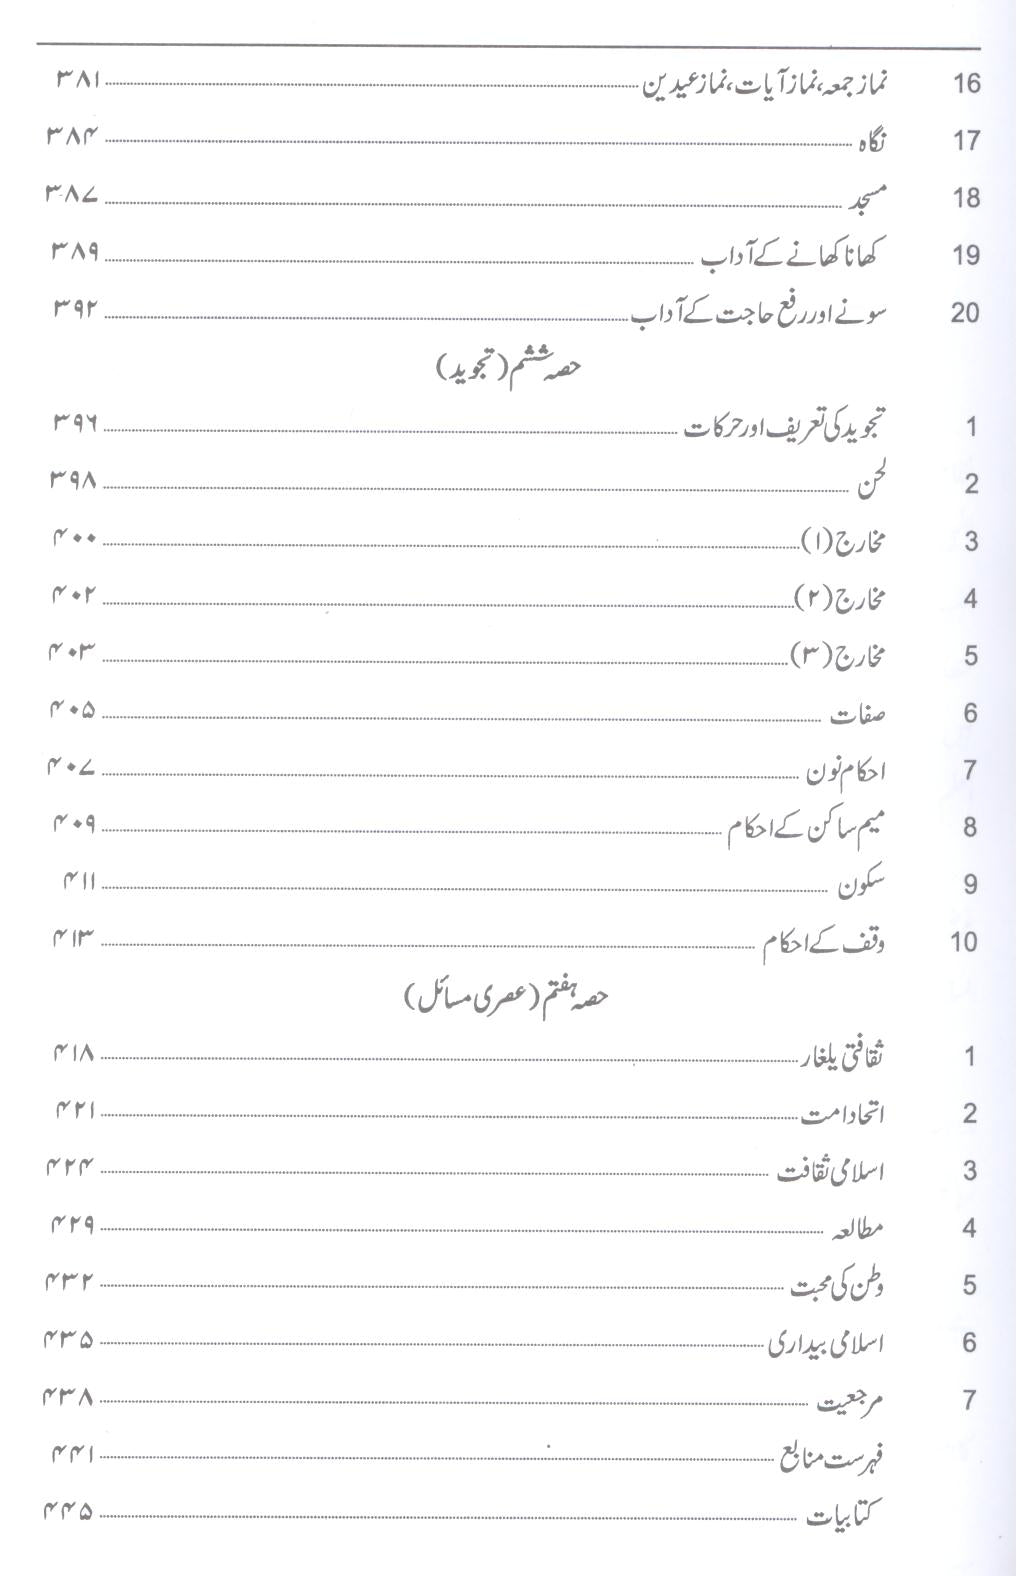 16 نماز جمعہ، نماز آیات، نماز عیدین ۳۸۱
17 نگاہ ۳۸۴
18 مسجد ۳۸۷
19 کھانا کھانے کے آداب ۳۸۹
20 سونے اور رفع حاجت کے آداب ۳۹۲
حصہ ششم (تجوید)
1 تجوید کی تعریف اور حرکات ۳۹۶
2 لحن ۳۹۸
3 مخارج (۱) ۴۰۰
4 مخارج (۲) ۴۰۲
5 مخارج (۳) ۴۰۳
6 صفات ۴۰۵
7 احکام نون ۴۰۷
8 میم ساکن کے احکام ۴۰۹
9 سکون ۴۱۱
10 وقف کے احکام ۴۱۳
حصہ ہفتم (عصری مسائل)
1 ثقافتی یلغار ۴۱۸
2 اتحاد امت ۴۲۱
3 اسلامی ثقافت ۴۲۴
4 مطالعہ ۴۲۹
5 وطن کی محبت ۴۳۲
6 اسلامی بیداری ۴۳۵
7 مرجعیت ۴۳۸
فہرست منابع ۴۴۱
کتابیات ۴۴۵